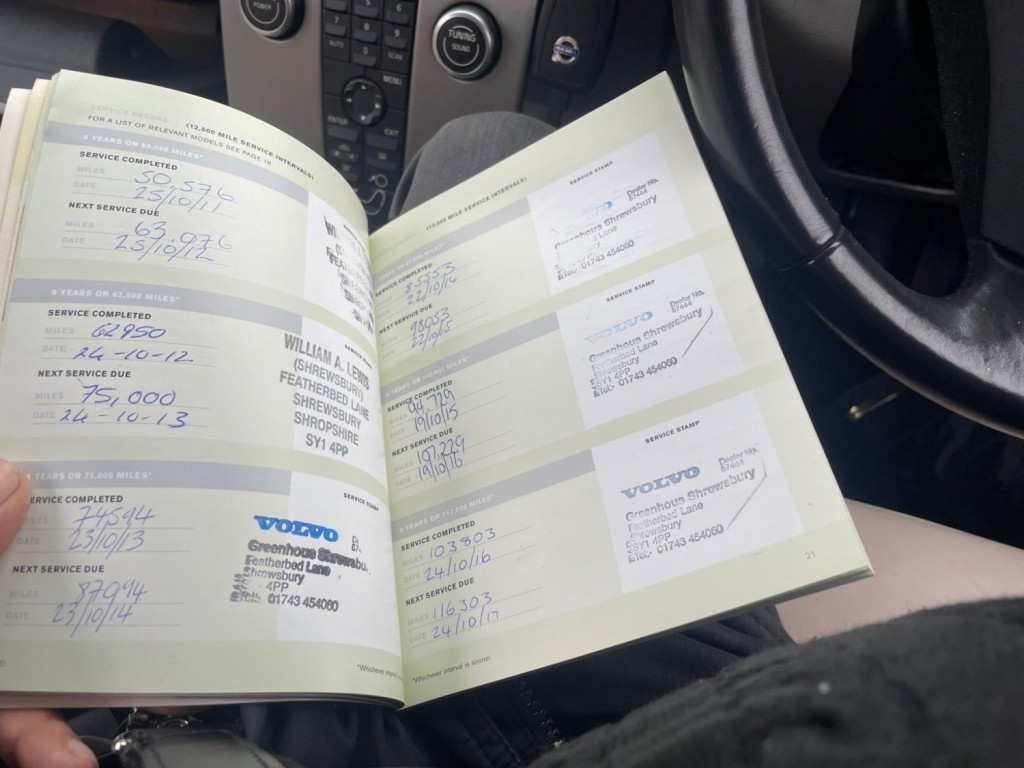 POWER
7
8
9
AUTO
0
SCAN
MENU
ENTER
EXIT
TUNING
SOUND
SERVICE RECORD (12,500 MILE SERVICE INTERVALS)
FOR A LIST OF RELEVANT MODELS SEE PAGE 16
4 YEARS OR 50,000 MILES*
SERVICE COMPLETED
MILES 50,576
DATE 25/10/11
NEXT SERVICE DUE
MILES 63,076
DATE 25/10/12
5 YEARS OR 62,500 MILES*
SERVICE COMPLETED
MILES 62950
DATE 24-10-12
NEXT SERVICE DUE
MILES 75,000
DATE 24-10-13
WILLIAM A. LEWIS
(SHREWSBURY)
FEATHERBED LANE
SHREWSBURY
SHROPSHIRE
SY1 4PP
YEARS OR 75,000 MILES*
SERVICE COMPLETED
MILES 74594
DATE 23/10/13
NEXT SERVICE DUE
MILES 87094
DATE 23/10/14
SERVICE STAMP
VOLVO
Greenhous Shrewsbu
Featherbed Lane
Shrewsbury
4PP
01743 454060
*Whichever
(12,500 MILE SERVICE INTERVALS)
SERVICE COMPLETED
85553
22/10/14
NEXT SERVICE DUE
98053
22/10/15
SERVICE STAMP
Dealer No.
67444
Greenhous Shrewsbury
Featherbed Lane
Shrewsbury
SY1 4PP
Tel:- 01743 454060
SERVICE COMPLETED
94,729
19/10/15
NEXT SERVICE DUE
MILES 107,229
DATE 19/10/16
SERVICE STAMP
VOLVO
Dealer No.
67444
Greenhous Shrewsbury
Featherbed Lane
Shrewsbury
SY1 4PP
Tel:- 01743 454060
9 YEARS OR 112,500 MILES*
SERVICE COMPLETED
MILES 103803
DATE 24/10/16
NEXT SERVICE DUE
MILES 116303
DATE 24/10/17
SERVICE STAMP
VOLVO
Dealer No.
67444
Greenhous Shrewsbury
Featherbed Lane
Shrewsbury
SY1 4PP
Tel:- 01743 454060
*Whichever interval is sooner
21